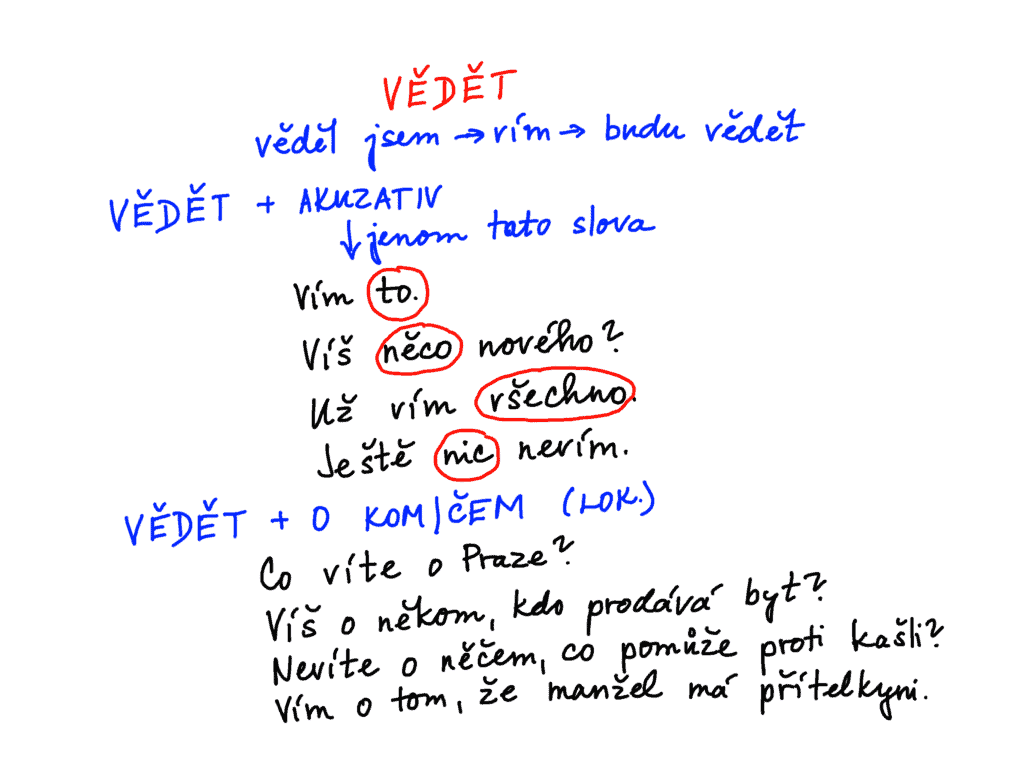 VĚDĚT
věděl jsem → vím → budu vědět
VĚDĚT + AKUZATIV
↓ jenom tato slova
Vím to.
Víš něco nového?
Už vím všechno.
Ještě nic nevím.
VĚDĚT + O KOM/ČEM (LOK.)
Co víte o Praze?
Víš o někom, kdo prodává byt?
Nevíte o něčem, co pomůže proti kašli?
Vím o tom, že manžel má přítelkyni.